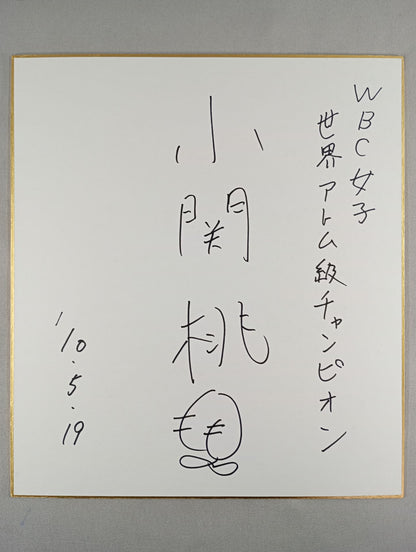 WBC女子
世界アトム級チャンピオン
小関桃
'10.5.19